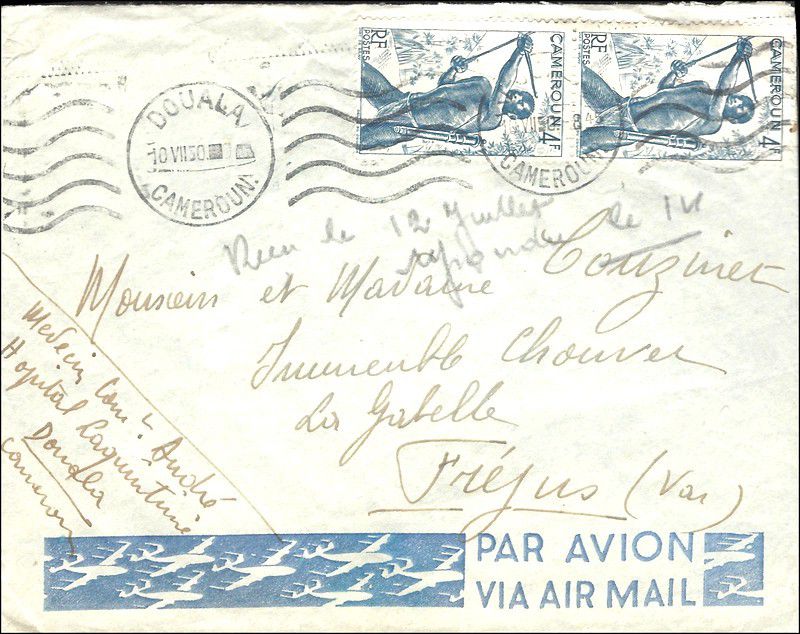 RF
POSTES
CAMEROUN
4F
RF
POSTES
CAMEROUN
4F
DOUALA
10 VII 50
CAMEROUN
CAMEROUN
Recu le 12 Juillet
répondu le 14
Monsieur et Madame Couzinet
Immeuble Chauvet
La Gabelle
Fréjus (Var)
Médecin Comt André
Hopital Laquintinie
Douala
Cameroun
PAR AVION
VIA AIR MAIL